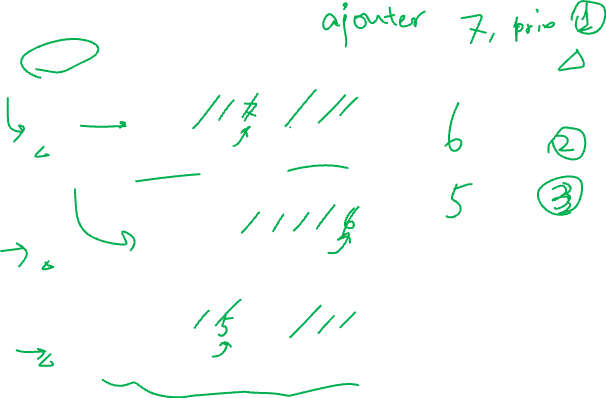 ajouter 7, prio 1
7 6 2
5 3
6
5